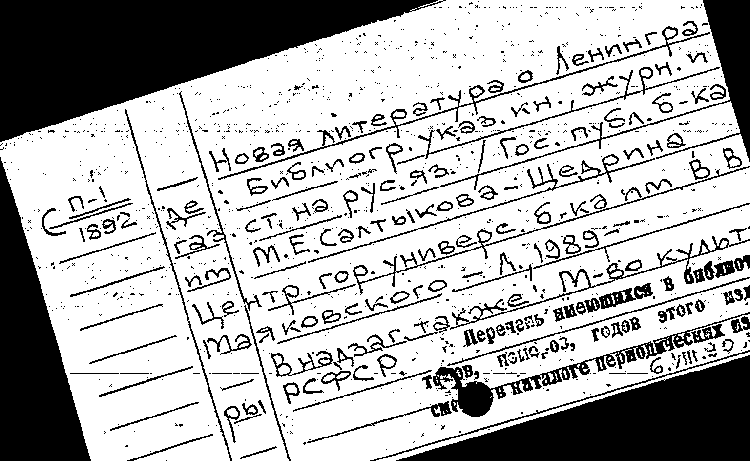 Новая литература о Ленингра-
де : Библиогр. указ. кн., журн. и
газ. ст. на рус. яз. / Гос. публ. б-ка
им. М.Е. Салтыкова-Щедрина,
Центр. гор. универс. б-ка им. В.В.
Маяковского. – Л., 1989–
В надзаг. также: М-во культ
ры РСФСР.
С П-1
1892
Перечень имеющихся в библиот
томов, годов этого изд
в каталоге периодических из
6.VIII.90